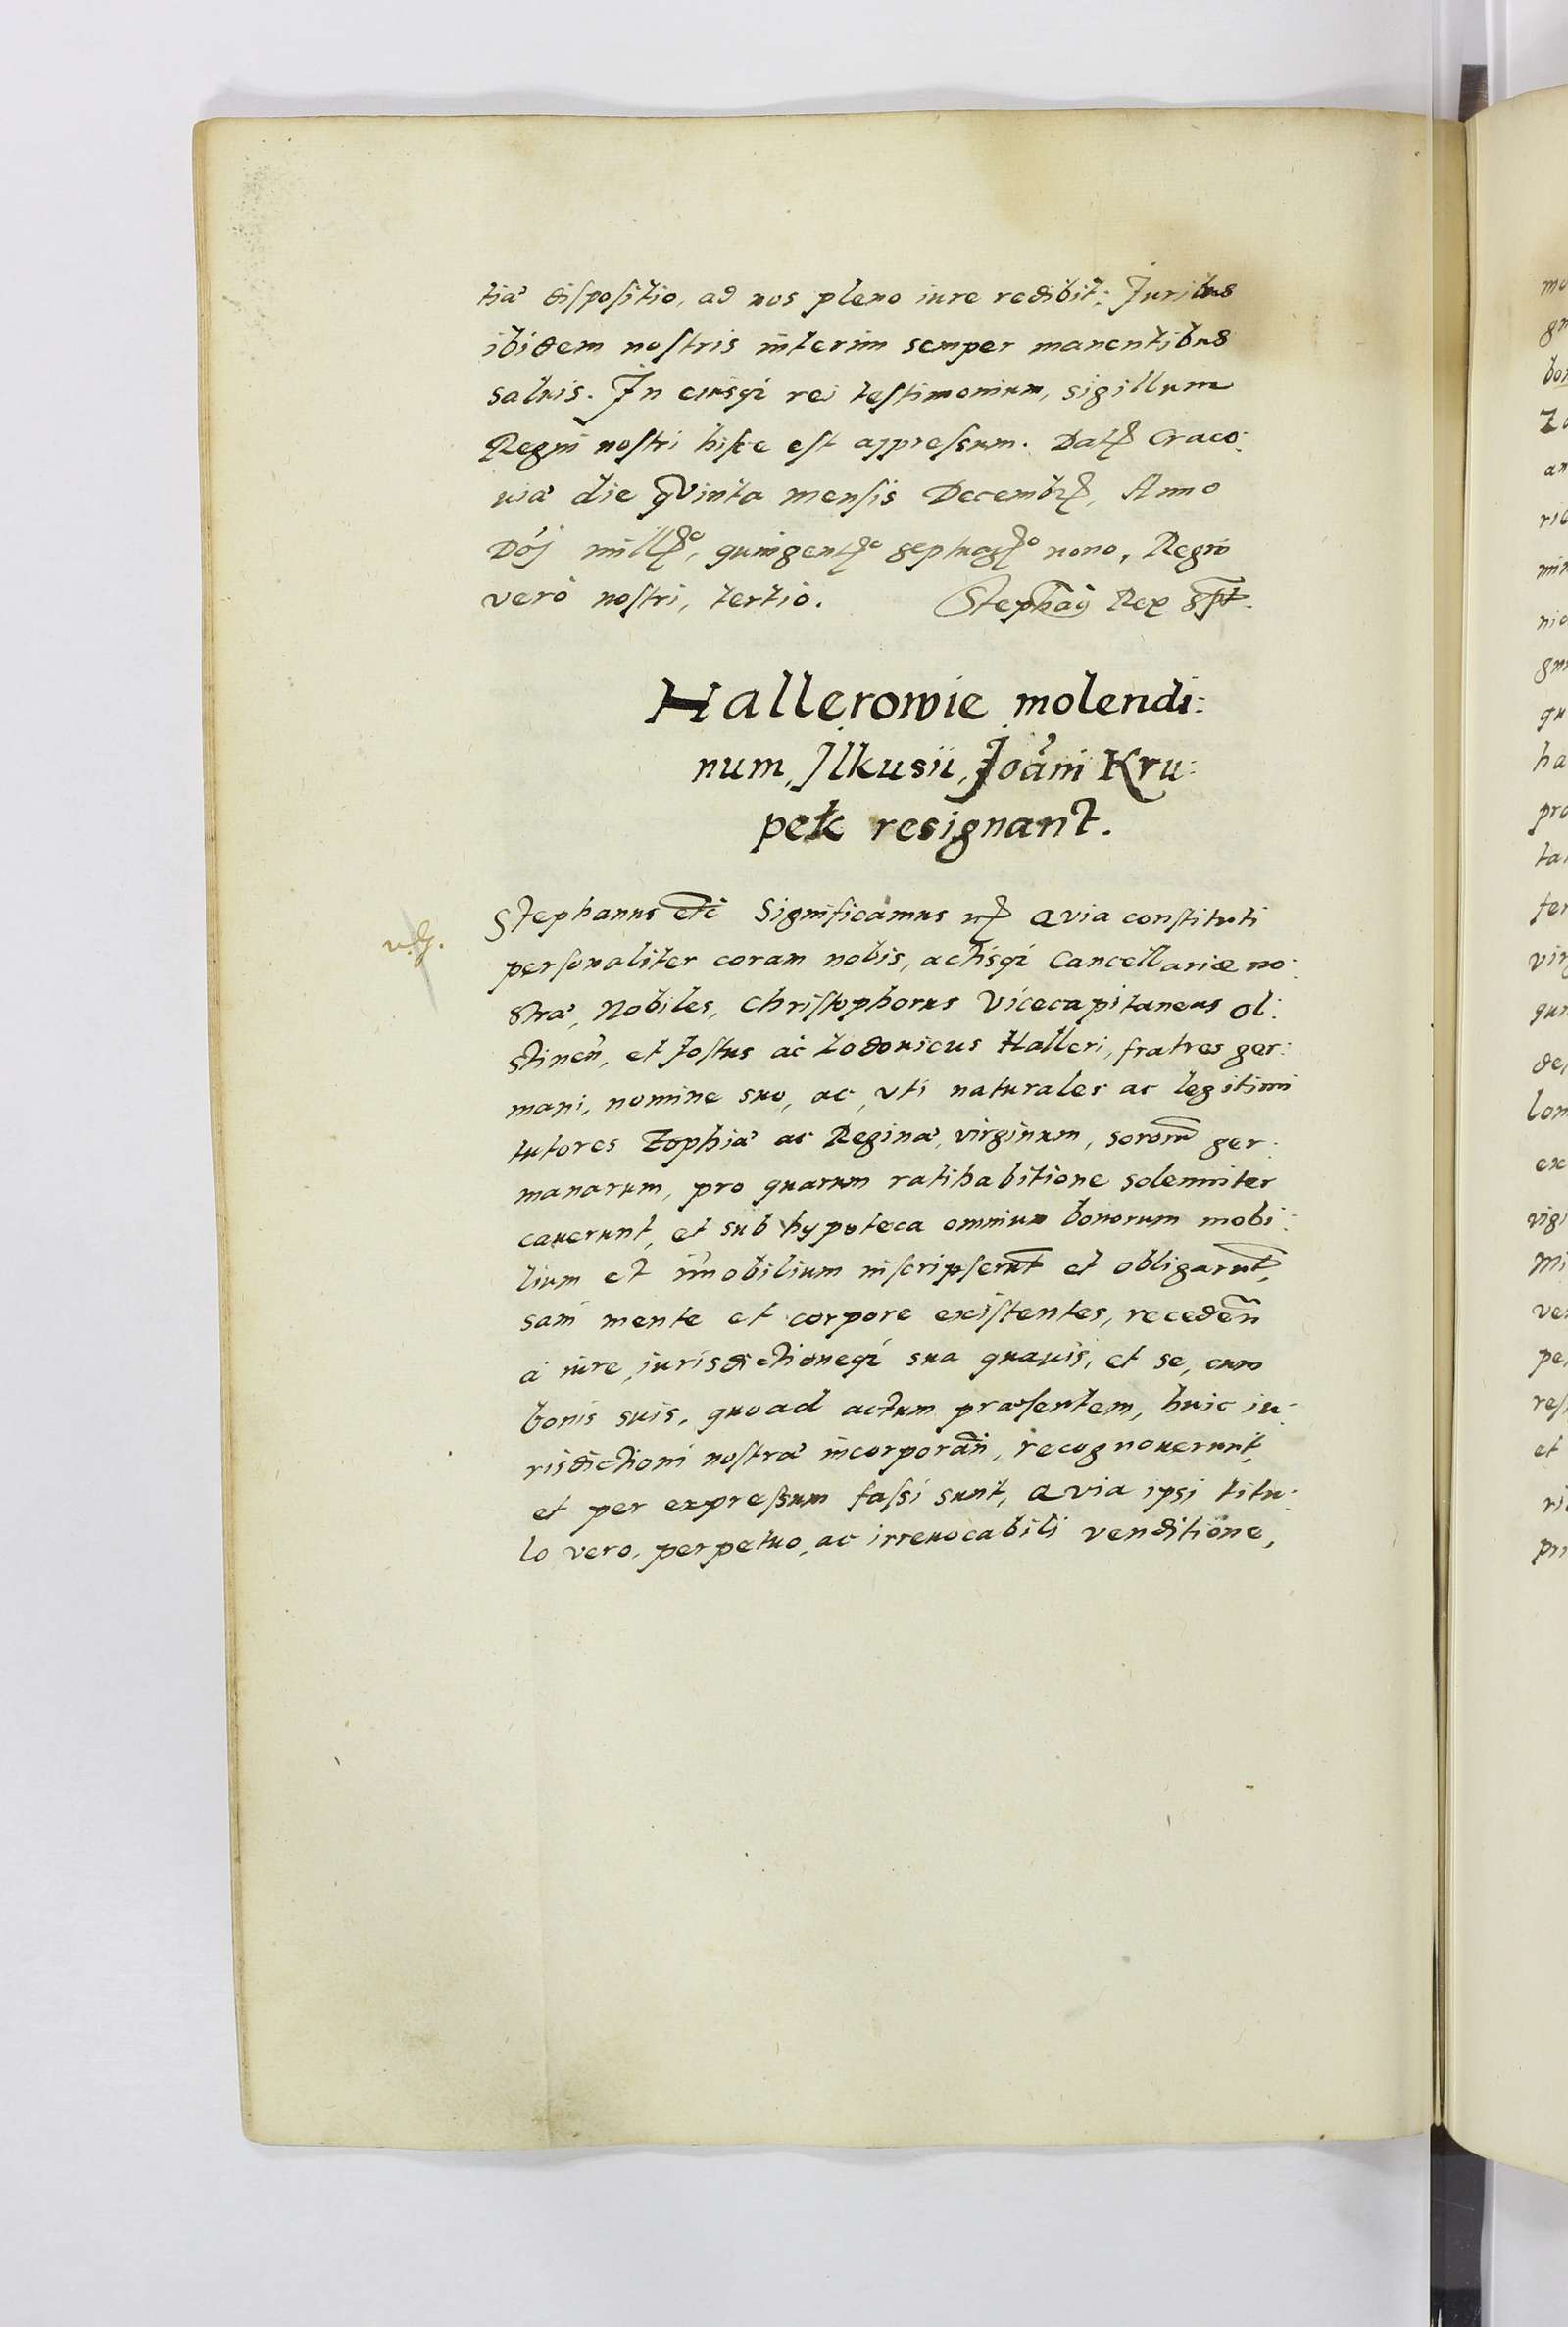 tiæ dispositio, ad nos pleno iure redibit: Juribus
ibidem nostris interim semper manentibus
saluis. In cuiusqȝ rei testimonium, sigillum
Regni nostri hisce est appressum. Datꝭ Craco:
uiæ die qVinta mensis Decembrꝭ, Anno
Dój millꝭo, quingentꝭo septuagꝭo nono, Regni
verò nostri, tertio. Stephaꝯ Rex sspt.
Hallerowie molendi:
num, Jlkusii, Joãni Kru:
pek resignant.
Stephanus etc Significamus ꝛcꝭ QVia constituti
personaliter coram nobis, actisqȝ Cancellariæ no:
stræ, Nobiles, Christophorus Vicecapitaneus Ol:
stinen̄, et Jostus ac Lodouicus Halleri, fratres ger:
mani, nomine suo, ac, vti naturales ac legitimi
tutores Zophiæ ac Reginæ, virginum, sororũ ger:
manarum, pro quarum ratihabitione solenniter
cauerunt, et sub hypoteca omnium bonorum mobi:
lium et im̄obilium inscripserũt et obligarũt,
sani mente et corpore existentes, receden̄
à iure, iurisdictioneqȝ sua quauis, et se, cum
bonis suis, quoad actum præsentem, huic iu:
risdictioni nostræ incorporãn, recognouerunt,
et per expressum fassi sunt, QVia ipsi titu:
lo vero, perpetuo, ac irreuocabili venditione,